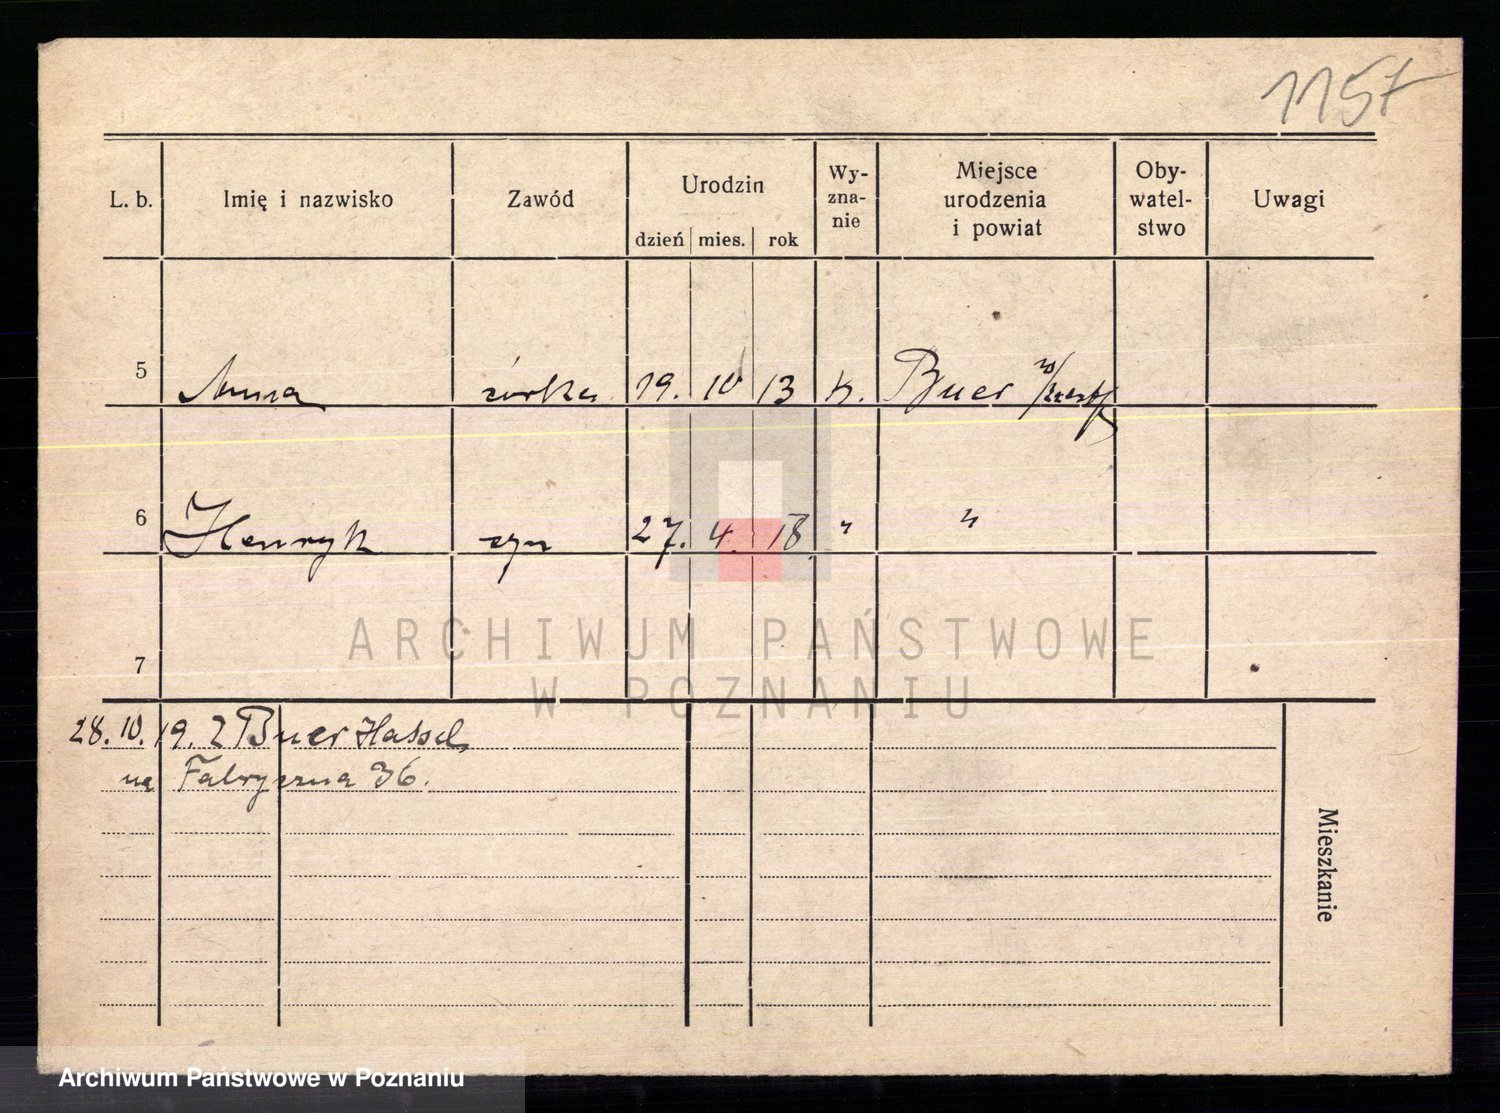 1157
L. b. Imię i nazwisko Zawód Urodzin Wy-zna-nie Miejsce urodzenia i powiat Oby-watel-stwo Uwagi
dzień mies. rok
5 Anna córka 19. 10 13 K. Buer
6 Henryk syn 27. 4. 18. " "
7
ARCHIWUM PAŃSTWOWE
W POZNANIU
28. 10. 19. Z Buer Hassel
na Fabryczna 36.
Mieszkanie
Archiwum Państwowe w Poznaniu